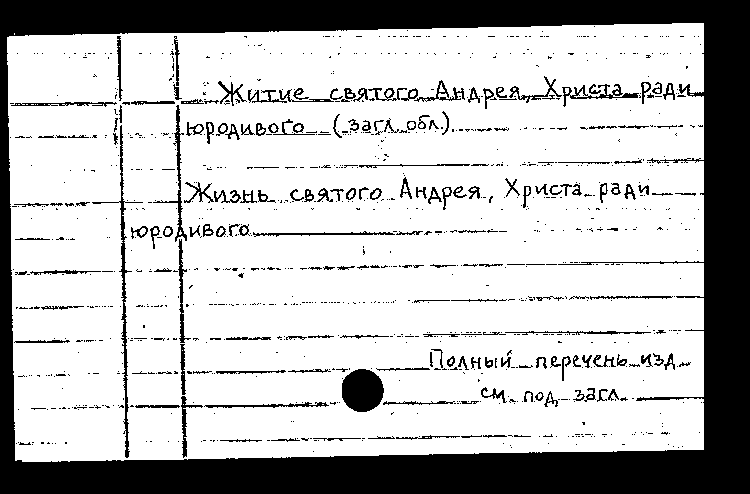 Житие святого Андрея, Христа ради
юродивого (загл. обл.)
Жизнь святого Андрея, Христа ради
юродивого
Полный перечень изд.
см. под загл.